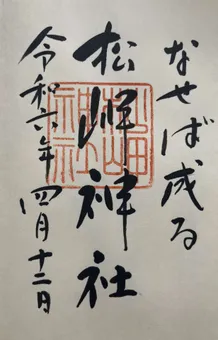 なせば成る
松岬神社
令和六年 四月十二日